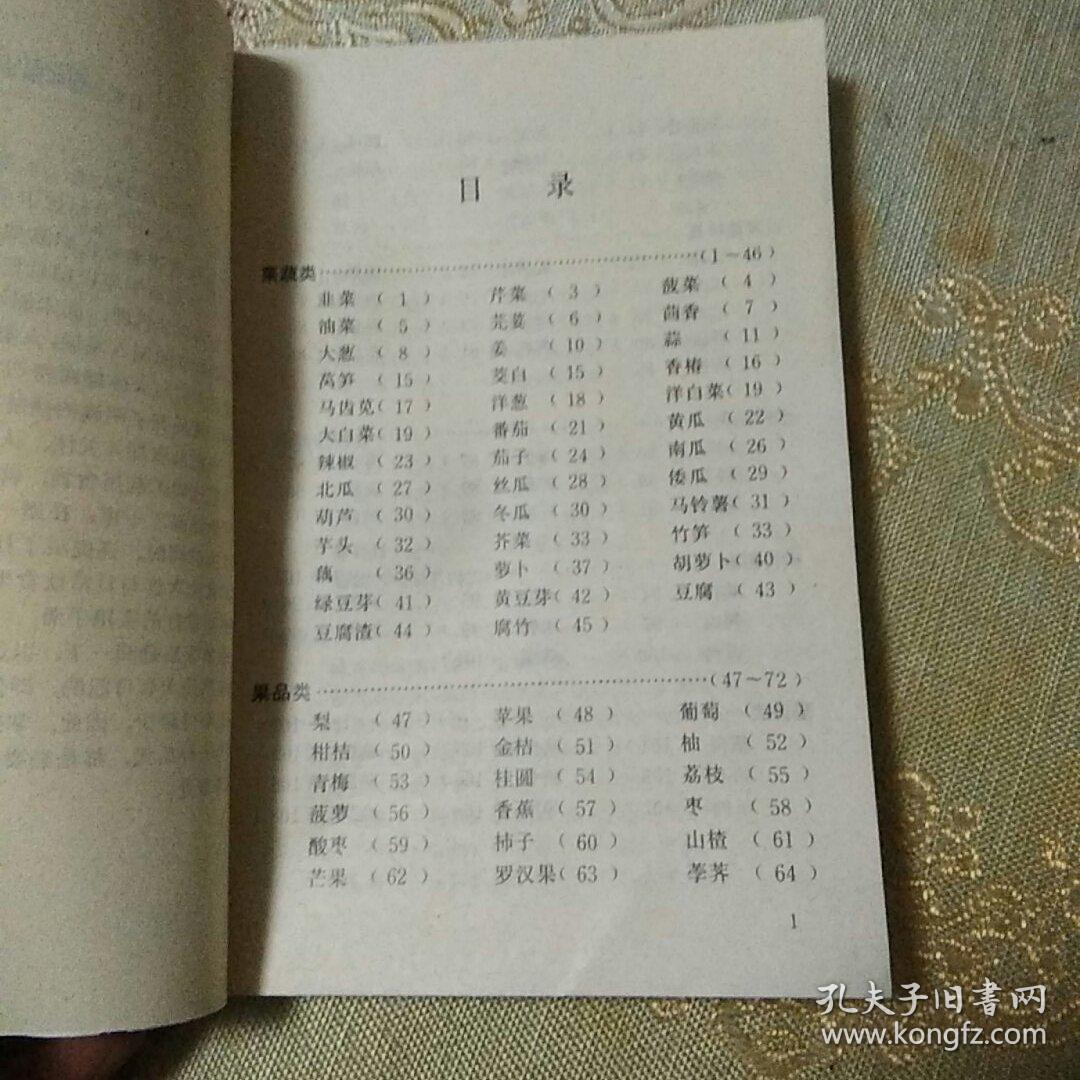 目 录
菜蔬类……………………………………(1～46)
韭菜 ( 1 ) 芹菜 ( 3 ) 菠菜 ( 4 )
油菜 ( 5 ) 芫荽 ( 6 ) 茴香 ( 7 )
大葱 ( 8 ) 姜 ( 10 ) 蒜 ( 11 )
莴笋 ( 15 ) 茭白 ( 15 ) 香椿 ( 16 )
马齿苋( 17 ) 洋葱 ( 18 ) 洋白菜( 19 )
大白菜( 19 ) 番茄 ( 21 ) 黄瓜 ( 22 )
辣椒 ( 23 ) 茄子 ( 24 ) 南瓜 ( 26 )
北瓜 ( 27 ) 丝瓜 ( 28 ) 倭瓜 ( 29 )
葫芦 ( 30 ) 冬瓜 ( 30 ) 马铃薯( 31 )
芋头 ( 32 ) 芥菜 ( 33 ) 竹笋 ( 33 )
藕 ( 36 ) 萝卜 ( 37 ) 胡萝卜( 40 )
绿豆芽( 41 ) 黄豆芽( 42 ) 豆腐 ( 43 )
豆腐渣( 44 ) 腐竹 ( 45 )
果品类……………………………………(47～72)
梨 ( 47 ) 苹果 ( 48 ) 葡萄 ( 49 )
柑桔 ( 50 ) 金桔 ( 51 ) 柚 ( 52 )
青梅 ( 53 ) 桂圆 ( 54 ) 荔枝 ( 55 )
菠萝 ( 56 ) 香蕉 ( 57 ) 枣 ( 58 )
酸枣 ( 59 ) 柿子 ( 60 ) 山楂 ( 61 )
芒果 ( 62 ) 罗汉果( 63 ) 荸荠 ( 64 )
1
孔夫子旧書网
www.kongfz.com